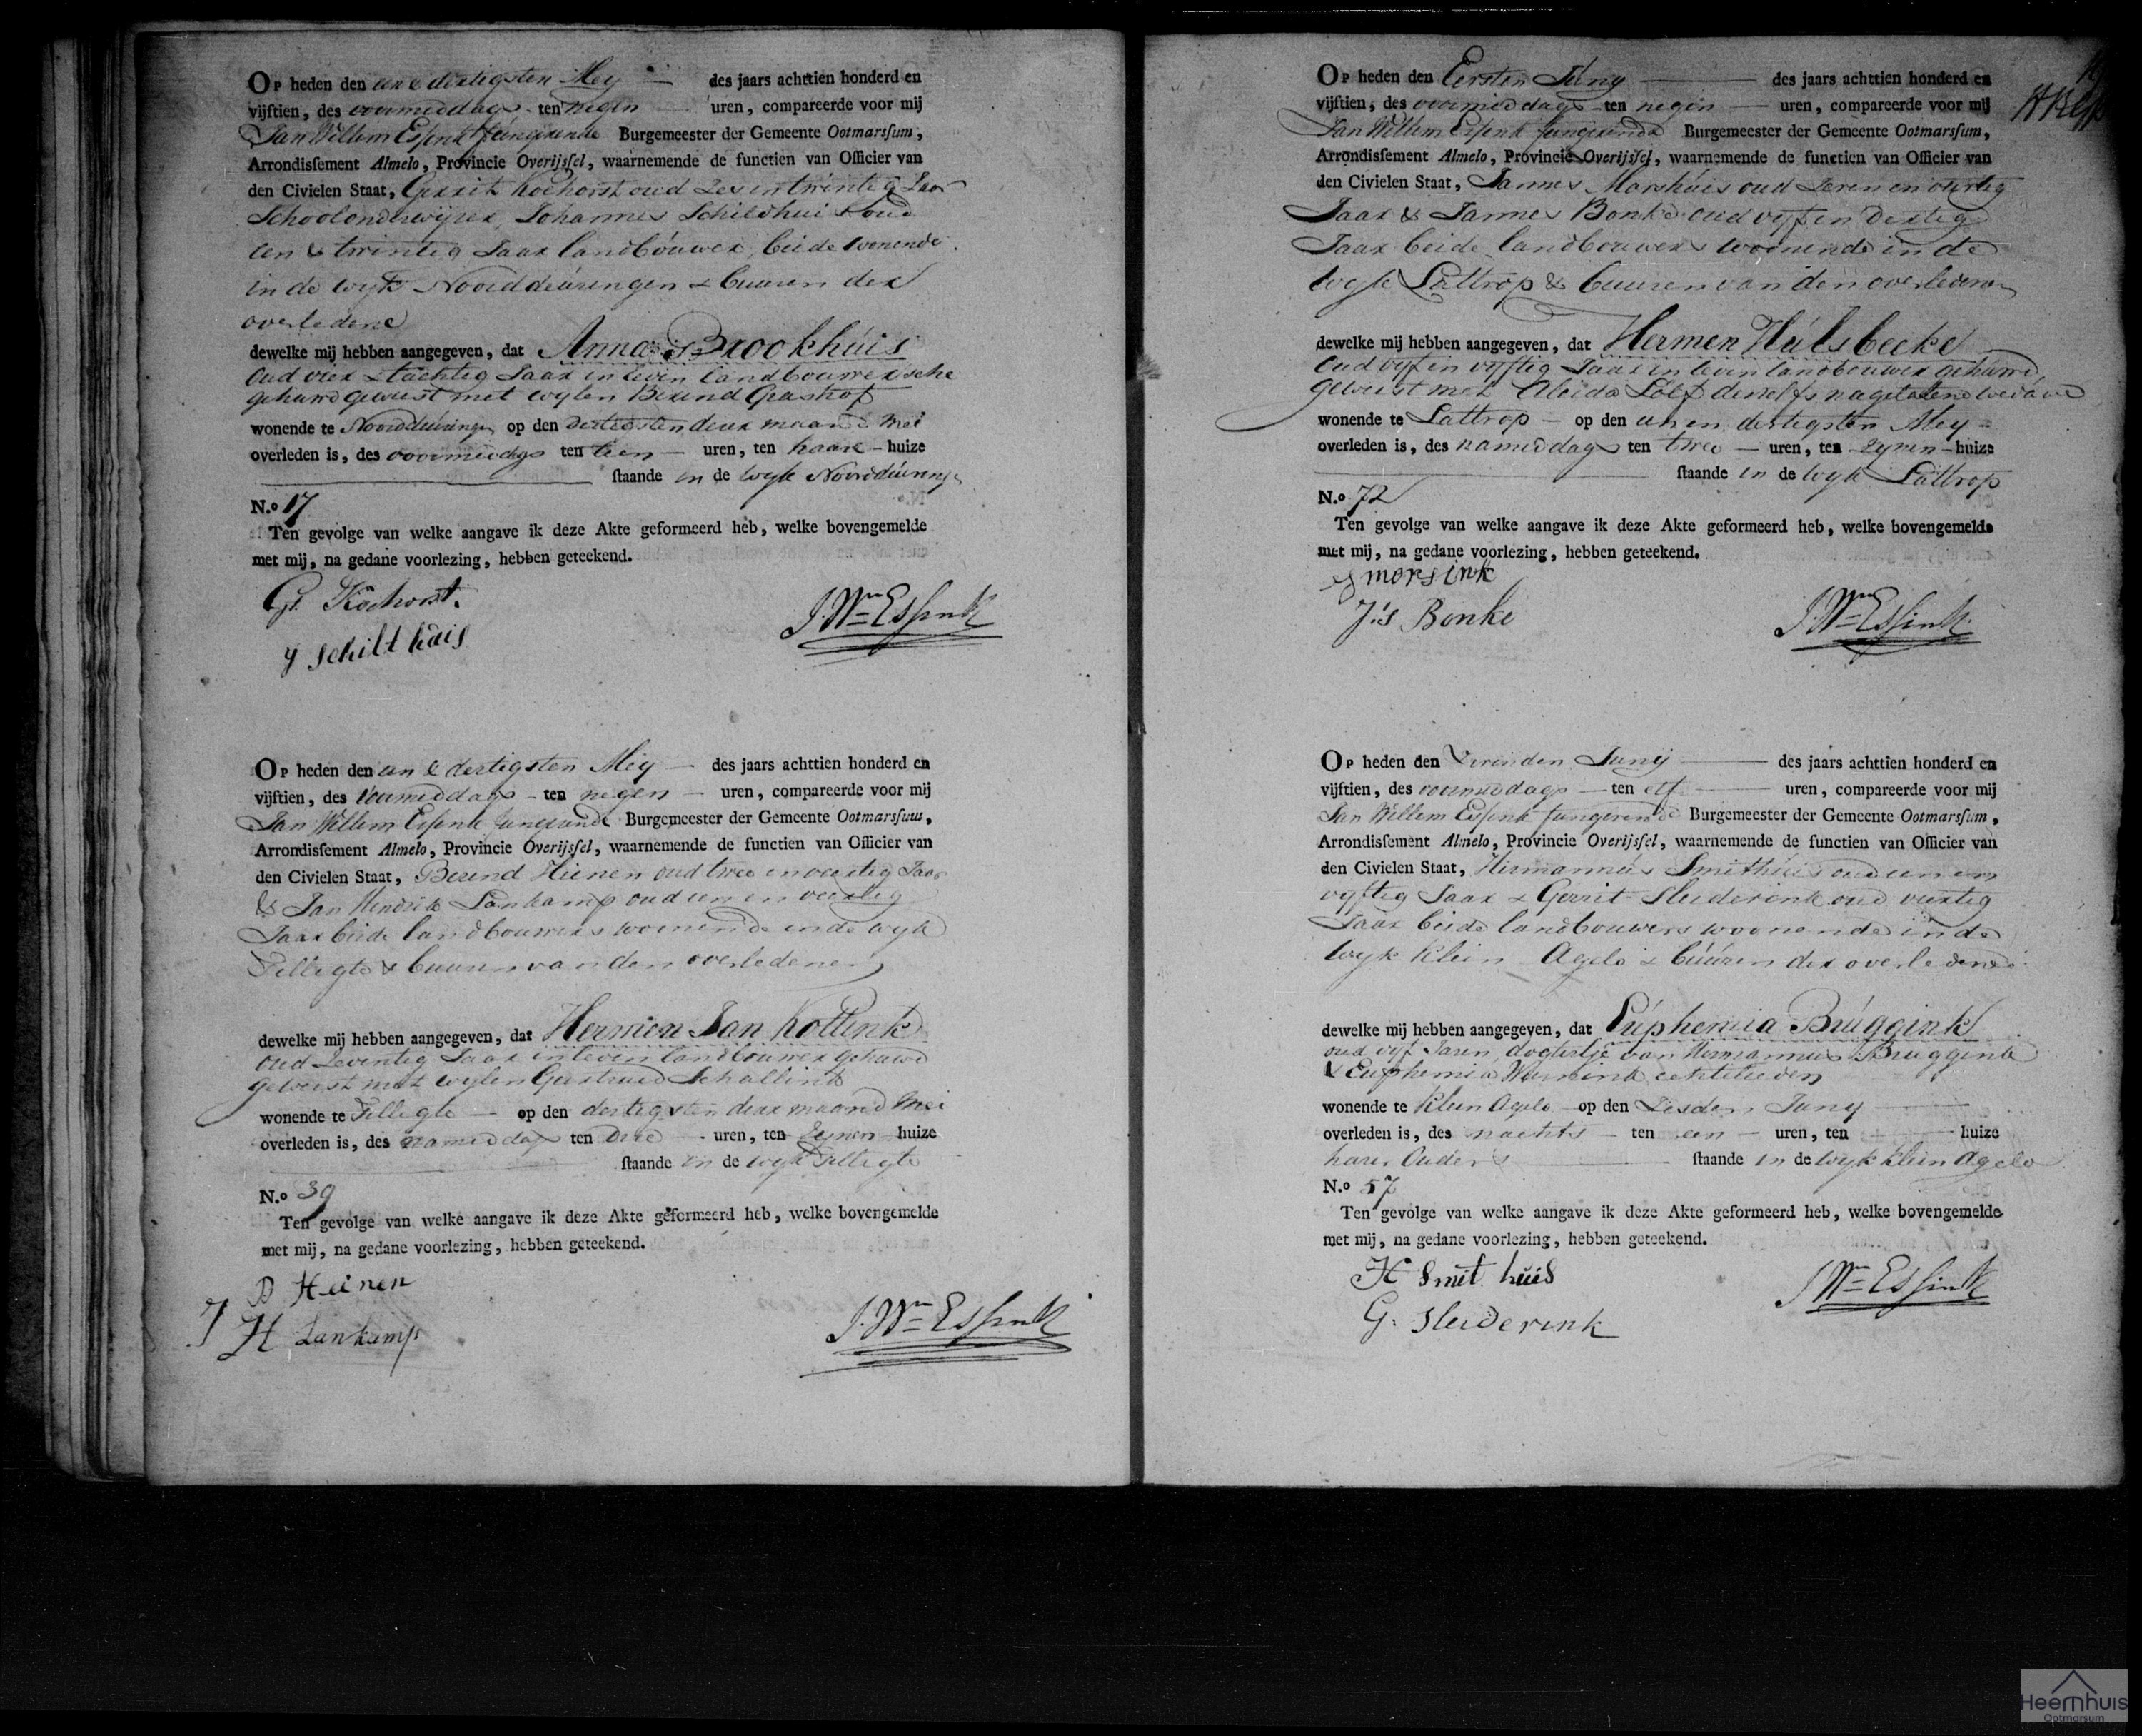 Op heden den een & dertigsten Mey — des jaars achttien honderd en
vijftien, des voormiddags - ten negen uren, compareerde voor mij
Jan Willem Essink fungerende Burgemeester der Gemeente Ootmarsſum,
Arrondisſement Almelo, Provincie Overijsſel, waarnemende de functien van Officier van
den Civielen Staat, Gerrit Kochorst oud Zes en twintig Jaar
Schoolonderwijzer, Johannes Schildhuis oud
een & twintig Jaar landbouwer, beide wonende
in de wyk Noorddeuringen & buuren der
overledene
dewelke mij hebben aangegeven, dat Anna Brookhuis
Oud vier & tachtig Jaar in leven landbouwersche
gehuwd geweest met wylen Berend Grashof
wonende te Noorddeuringen op den dertigsten deser maand Mei
overleden is, des voormiddags ten tien — uren, ten haare - huize
ſtaande in de wyk Noorddeuringe
N.o 17
Ten gevolge van welke aangave ik deze Akte geformeerd heb, welke bovengemelde
met mij, na gedane voorlezing, hebben geteekend.
Gt. Kochorst.
J Schilt huis
J. Wm Essink
Op heden den een & dertigsten Mey — des jaars achttien honderd en
vijftien, des Voormiddags - ten negen - uren, compareerde voor mij
Jan Willem Essink fungerende Burgemeester der Gemeente Ootmarsſum,
Arrondisſement Almelo, Provincie Overijsſel, waarnemende de functien van Officier van
den Civielen Staat, Berend Hienen oud twee en veertig Jaar
& Jan Hendrik Lankamp oud een en veertig
Jaar beide landbouwers woonende in de wyk
Tilligte & buuren van den overledenen
dewelke mij hebben aangegeven, dat Hermen Jan Kottink
oud Zeventig Jaar in leven landbouwer gehuwd
geweest met wylen Geertruid Schallink
wonende te Tilligte — op den dertigsten deser maand Mei
overleden is, des namiddags ten Drie - uren, ten Zynen huize
ſtaande in de wyk Tilligte
N.o 39
Ten gevolge van welke aangave ik deze Akte geformeerd heb, welke bovengemelde
met mij, na gedane voorlezing, hebben geteekend.
B Heinen
J H Lankamp
J. Wm Essink
Op heden den Eersten Juny — des jaars achttien honderd en
vijftien, des voormiddags - ten negen — uren, compareerde voor mij
Jan Willem Essink fungerende Burgemeester der Gemeente Ootmarsſum,
Arrondisſement Almelo, Provincie Overijsſel, waarnemende de functien van Officier van
den Civielen Staat, Jannes Morshuis oud Zeven en
Jaar & Jannes Bonke oud vyf en dertig
Jaar beide landbouwers woonende in de
wyk Lattrop & buuren van den overledenen
dewelke mij hebben aangegeven, dat Hermen Hulsbecke
Oud vyf en vyftig Jaar in leven landbouwer gehuwd
geweest met Aleida Lölf deszelfs nagelatene weduwe
wonende te Lattrop — op den een en dertigsten Mey -
overleden is, des namiddags ten twee — uren, ten Zynen - huize
ſtaande in de wyk Lattrop
N.o 72
Ten gevolge van welke aangave ik deze Akte geformeerd heb, welke bovengemelde
met mij, na gedane voorlezing, hebben geteekend.
J morsink
J:s Bonke
J. Wm Essink
Op heden den Juny — des jaars achttien honderd en
vijftien, des voormiddags — ten elf — uren, compareerde voor mij
Jan Willem Essink fungerende Burgemeester der Gemeente Ootmarsſum,
Arrondisſement Almelo, Provincie Overijsſel, waarnemende de functien van Officier van
den Civielen Staat, Hermannus Smithuis oud een en
vyftig Jaar & Gerrit Sleiderink oud veertig
Jaar beide landbouwers woonende in de
wyk Klein Agelo & buuren der overledene
dewelke mij hebben aangegeven, dat Euphemia Bruggink
oud vyf Jaren, dogtertje van Hermannus Bruggink
& Euphemia Wernink echtelieden
wonende te Klein Agelo - op den Zesden Juny
overleden is, des nachts - ten een - uren, ten huize
harer Ouders — ſtaande in de wyk klein Agelo
N.o 57
Ten gevolge van welke aangave ik deze Akte geformeerd heb, welke bovengemelde
met mij, na gedane voorlezing, hebben geteekend.
H Smit huis
G. Sleiderink
J Wm Essink
Heemhuis
Ootmarsum